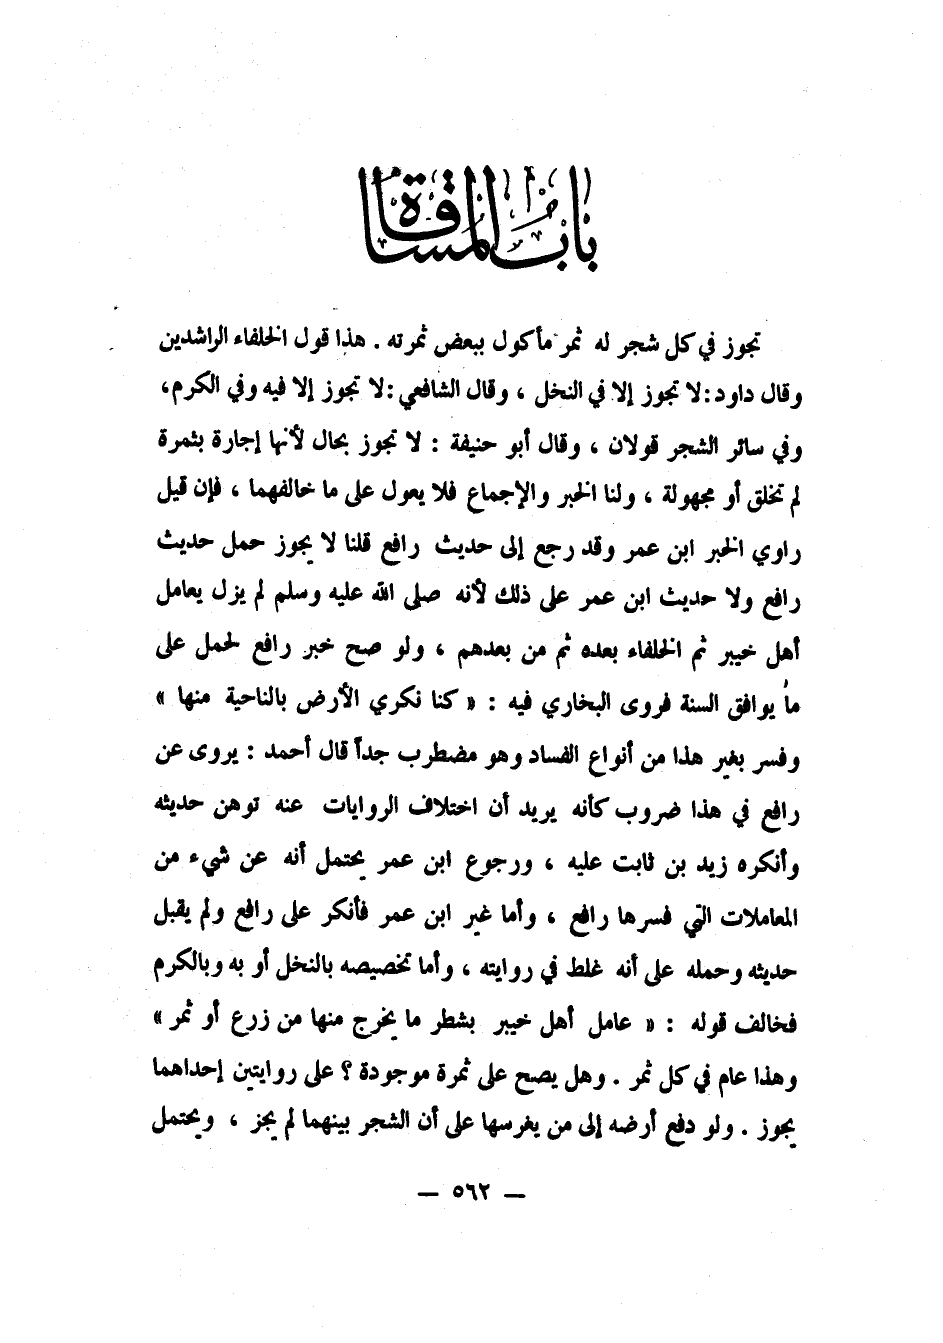 باب المساقاة
تجوز في كل شجر له ثمر مأكول ببعض ثمرته . هذا قول الخلفاء الراشدين
وقال داود: لا تجوز إلا في النخل ، وقال الشافعي: لا تجوز إلا فيه وفي الكرم،
وفي سائر الشجر قولان ، وقال أبو حنيفة : لا تجوز بحال لأنها إجارة بثمرة
لم تخلق أو مجهولة ، ولنا الخبر والإجماع فلا يعول على ما خالفهما ، فإن قيل
راوي الخبر ابن عمر وقد رجع إلى حديث رافع قلنا لا يجوز حمل حديث
رافع ولا حديث ابن عمر على ذلك لأنه صلى الله عليه وسلم لم يزل يعامل
أهل خيبر ثم الخلفاء بعده ثم من بعدهم ، ولو صح خبر رافع لحمل على
ما يوافق السنة فروى البخاري فيه : « كنا نكري الأرض بالناحية منها »
وفسر بغير هذا من أنواع الفساد وهو مضطرب جداً قال أحمد : يروى عن
رافع في هذا ضروب كأنه يريد أن اختلاف الروايات عنه توهن حديثه
وأنكره زيد بن ثابت عليه ، ورجوع ابن عمر يحتمل أنه عن شيء من
المعاملات التي فسرها رافع ، وأما غير ابن عمر فأنكر على رافع ولم يقبل
حديثه وحمله على أنه غلط في روايته ، وأما تخصيصه بالنخل أو به وبالكرم
فخالف قوله : « عامل أهل خيبر بشطر ما يخرج منها من زرع أو ثمر »
وهذا عام في كل ثمر . وهل يصح على ثمرة موجودة ؟ على روايتين إحداهما
يجوز . ولو دفع أرضه إلى من يغرسها على أن الشجر بينهما لم يجز ، ويحتمل
— ٥٦٢ —